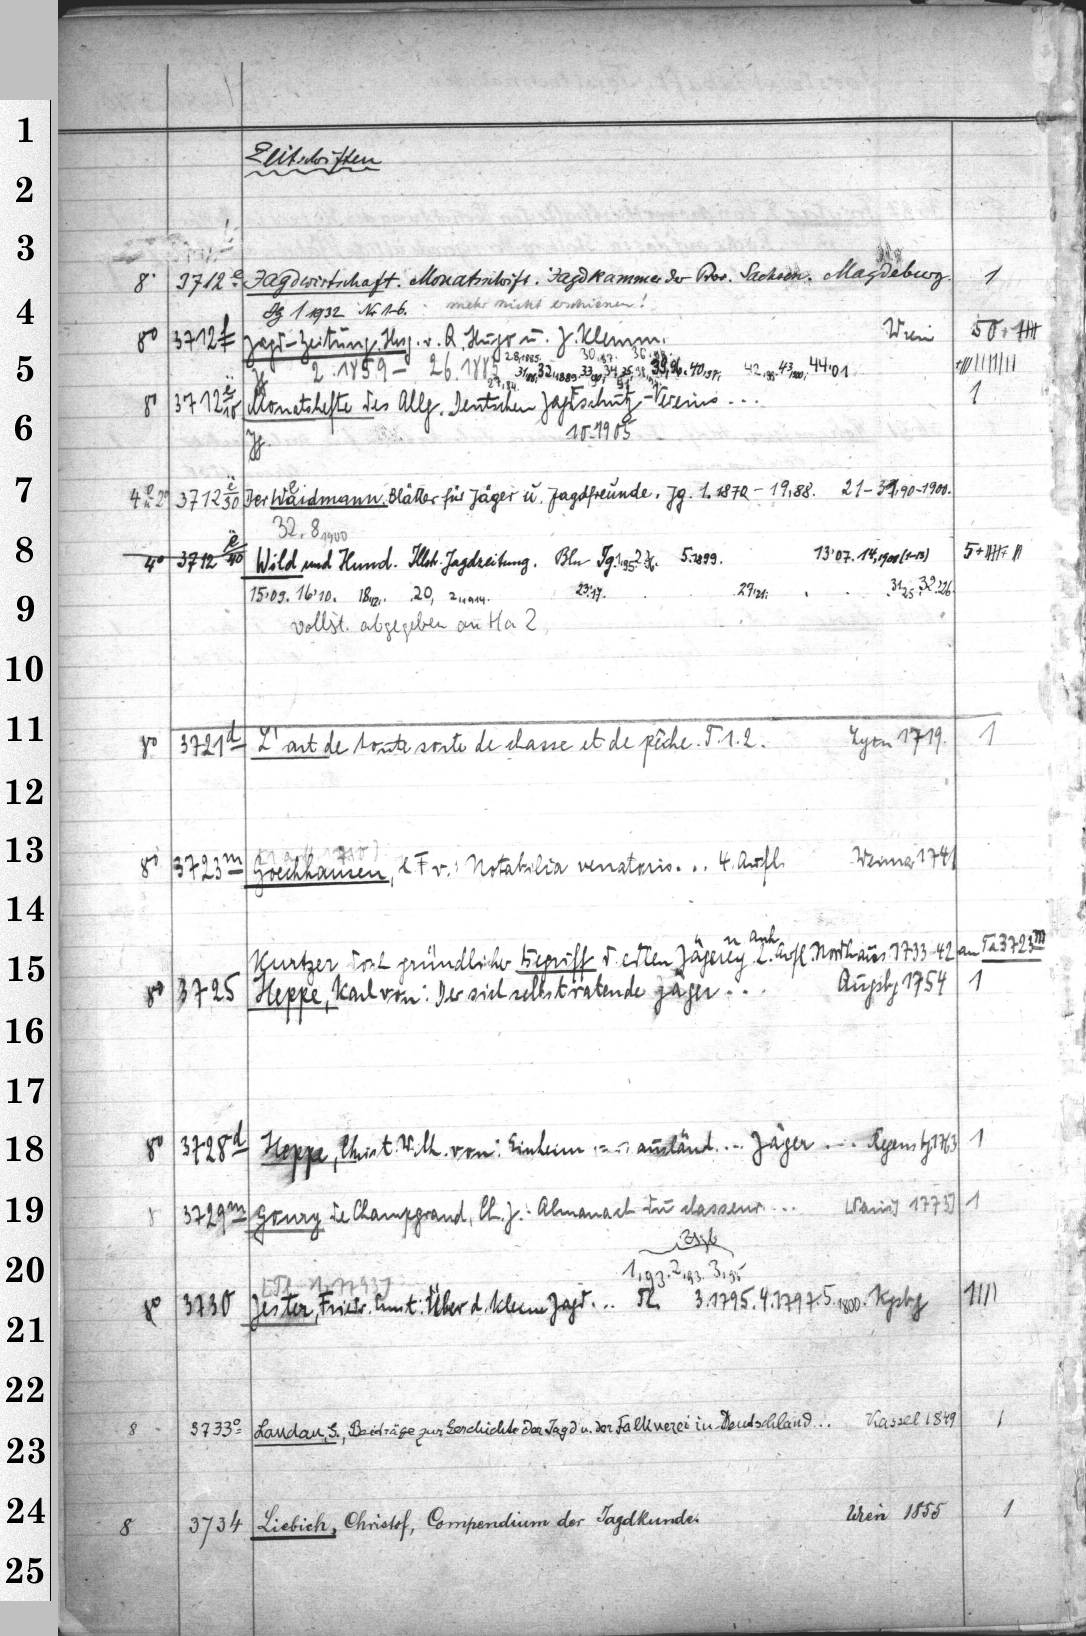 1
Zeitschriften
2
3
8° 3712 e Jagdwirtschaft. Monatsschrift. Jagdkammer der Prov. Sachsen. Magdeburg. 1
4
Jg 1 1932 Nr 1-6. mehr nicht erschienen!
8° 3712 f Jagd-Zeitung. Hrsg. v. A. Hugo u. J. Klemm. Wien 50+
5
Jg 2. 1859 - 26. 1883
8° 3712 Monatshefte des Allg. Deutschen Jagdschutz-Vereins ... 1
6
Jg. 10. 1905
7
4° u. 2° 3712 ë/30 Der Waidmann. Blätter für Jäger u. Jagdfreunde. Jg. 1. 1870 - 19, 88. 21-31, 90-1900.
32. 8 1900
8
4° 3712 ë/40 Wild und Hund. Illstr. Jagdzeitung. Bln Jg. 1, 95 2 5. 1899. 13'07. 14, 1908 (1-13) 5+
15'09. 16'10. 18, 12. 20, 2, 1914. 23'17. 27, 21. 31, 25. 32, 26.
9
vollst. abgegeben an Ha 2
10
11
8° 3721 d L'art de toute sorte de chasse et de pêche. T. 1. 2. Lyon 1719. 1
12
13
8° 3723 m Goechhausen, H F v.: Notabilia venatoris ... 4. Aufl. Weimar 1741
14
Kurtzer doch gründlicher Begriff d. edlen Jägerey n anh 2. Aufl. Nordhaus. 1733-42 an Ta 3723 m
15
8° 3725 Heppe, Karl von: Der sich selbst ratende Jäger ... Augsbg 1754 1
16
17
18
8° 3728 d Heppe, Christ. Wilh. von: Einheim u. ausländ. ... Jäger ... Regensbg. 1763 1
19
8 3729 m Goury de Champgrand, Ch. J.: Almanach du chasseur ... [Paris] 1773] 1
20
1, 93. 2, 93. 3, 95
[Tl. 1. 1793]
8° 3730 Jester, Friedr. Ernst: Über d. kleine Jagd ... Tl. 3. 1795. 4. 1797. 5. 1800. Kgsbg 1////
21
22
8 3733 e Landau, G., Beiträge zur Geschichte der Jagd u. der Falknerei in Deutschland .. Kassel 1849 1
23
24
8 3734 Liebich, Christof, Compendium der Jagdkunde. Wien 1855 1
25